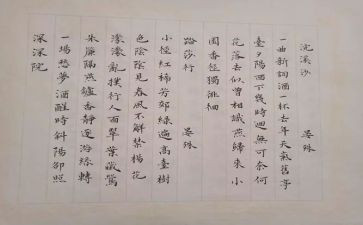 浣溪沙　晏殊
一曲新詞酒一杯去年天氣舊亭
臺夕陽西下幾時迴無可奈何
花落去似曾相識燕歸來小
園香徑獨徘徊
踏莎行　晏殊
小徑紅稀芳郊綠遍高臺樹
色陰陰見春風不解禁楊花
濛濛亂撲行人面翠葉藏鶯
朱簾隔燕爐香靜逐游絲轉
一場愁夢酒醒時斜陽卻照
深深院